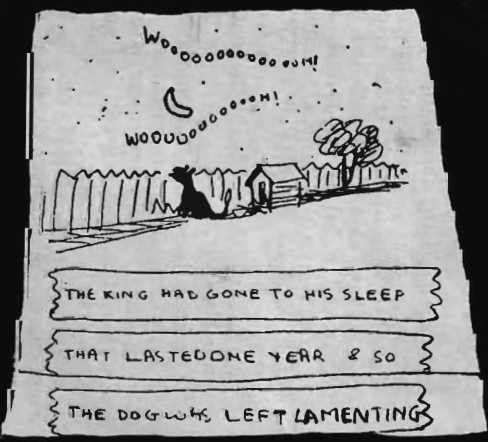 Wooooooooooooooh!
WOOUUoooooooooH!
THE KING HAD GONE TO HIS SLEEP
THAT LASTED ONE YEAR & SO
THE DOG WAS LEFT LAMENTING